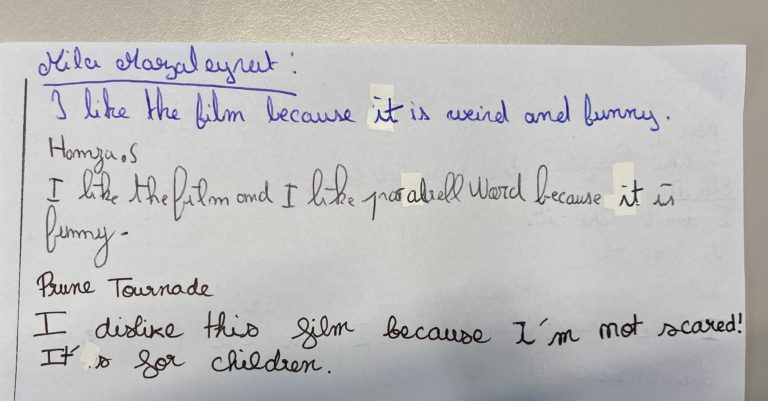 Mila Mazaleyrat :
I like the film because it is weird and funny.
Hamza.S
I like the film and I like parallell Word because it is
funny.
Prune Tournade
I dislike this film because I'm not scared!
It's for children.